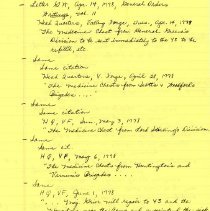 - Letter GW, Apr. 14, 1778, General Orders
Writings, Vol. 11
Head Quarters, Valley Forge, Tues., Apr. 14, 1778
"The Medicine Chest from General Greene's
Division to be sent immediately to the Y.S to be
refilled, etc.
- Same
Same citation
Head Quarters, V. Forge, April 28, 1778
"The Medicine Chests from Scotts &
Brigades ....."
- Same
Same citation
HQ, VF, Sun., May 3, 1778
"The Medicine Chest from Lord Stirling's Division
- Same
Same cit
HQ, VF, May 6, 1778
"The Medicine Chests from Huntington's and
Varnum's Brigades ....
- Same
HQ, VF, June 1, 1778
will repair to YS and the